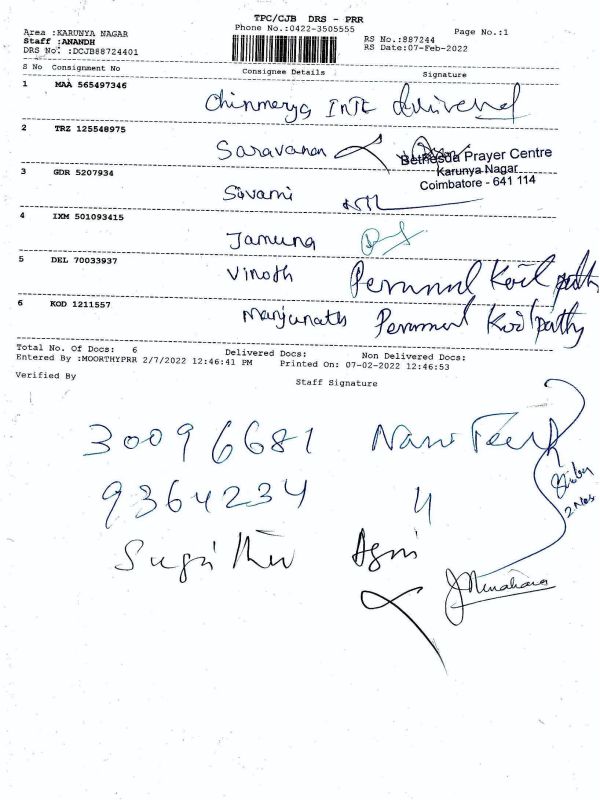 TPC/CJB DRS - PRR
Phone No.:0422-3505555
Page No.:1
Area :KARUNYA NAGAR
Staff :ANANDH
DRS No. :DCJB88724401
RS No.:887244
RS Date:07-Feb-2022
S No Consignment No Consignee Details Signature
1 MAA 565497346 Chinmerya Delivered
2 TRZ 125548975 Saravanan
Bethesda Prayer Centre
Karunya Nagar
Coimbatore - 641 114
3 GDR 5207934
4 IXM 501093415 Jamuna
5 DEL 70033937 Vinoth Perumal Koil path
6 KOD 1211557 Manjunath Perumal Koil pathy
Total No. Of Docs: 6 Delivered Docs: Non Delivered Docs:
Entered By :MOORTHYPRR 2/7/2022 12:46:41 PM Printed On: 07-02-2022 12:46:53
Verified By Staff Signature
30096681
9364234 4
2 Nos